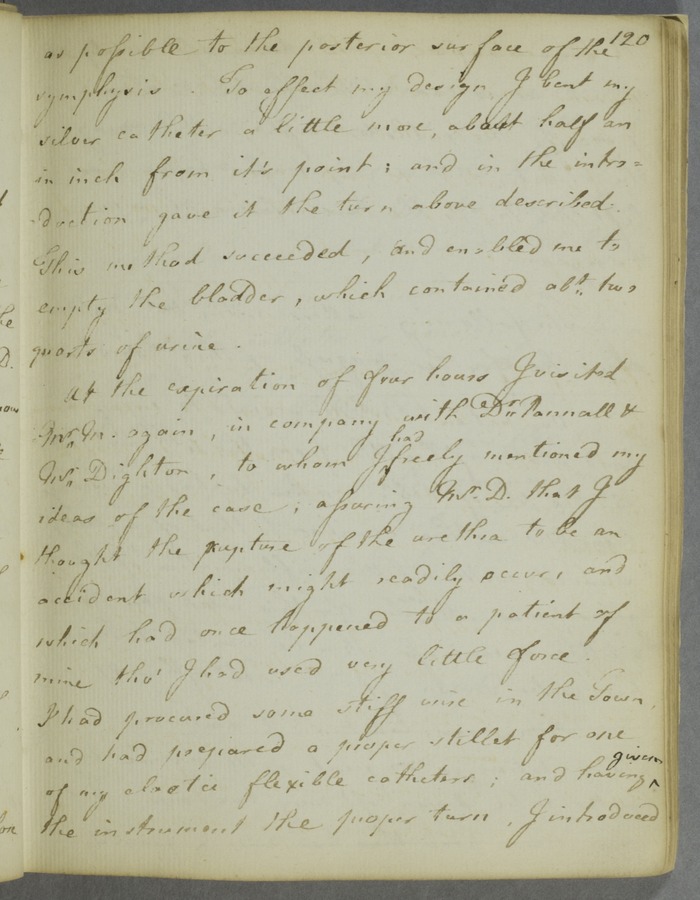 120
as possible to the posterior surface of the
symphysis . To effect my design I bent my
silver catheter a little more, about half an
in inch from it's point; and in the intro=
-duction gave it the turn above described.
This method succeeded, and enabled me to
empty the bladder, which contained abt. two
quarts of urine.
At the expiration of four hours I visited
Mr. M. again, in company with Dr. Pannall &
Mr. Dighton, to whom I had freely mentioned my
ideas of the case; assuring Mr. D. that I
thought the rupture of the urethra to be an
accident which might readily occur, and
which had once happened to a patient of
mine tho' I had used very little force.
I had procured some stiff wire in the Town,
and had prepared a proper stillet for one
of my elastic flexible catheters; and having given
the instrument the proper turn, I introduced